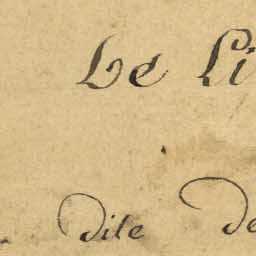 Le Li
dite de